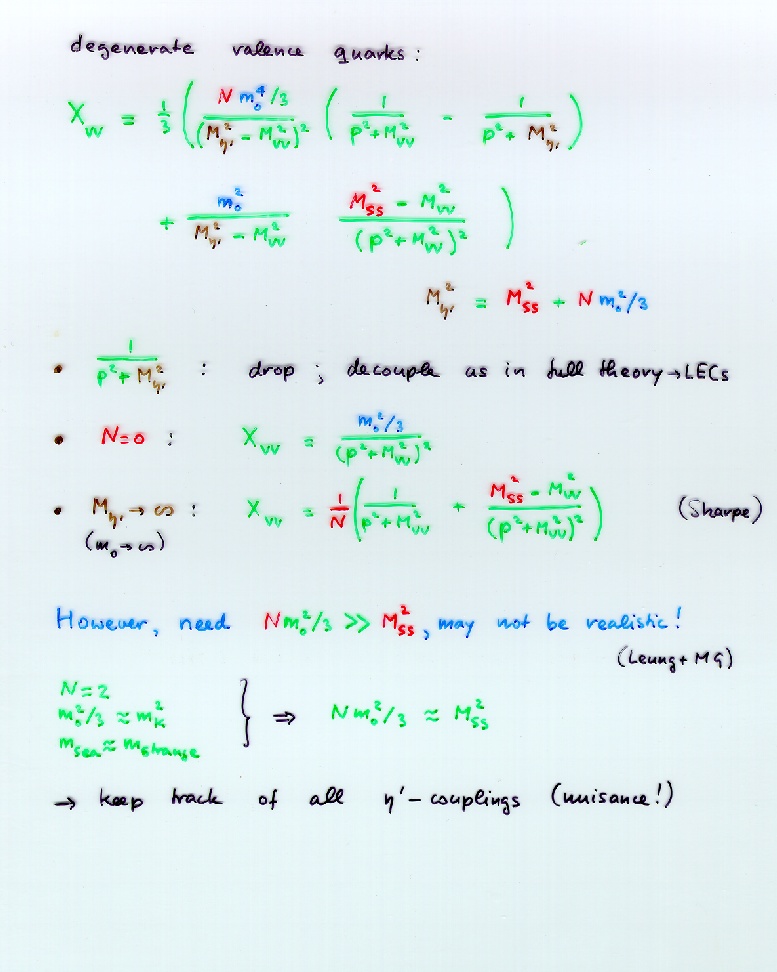 degenerate valence quarks:
X_VV = 1/3 ( (N m₀⁴/3)/(M²_η' - M²_VV)² ( 1/(p²+M²_VV) - 1/(p²+M²_η') )
+ m₀²/(M²_η' - M²_VV) (M²_SS - M²_VV)/(p²+M²_VV)² )
M²_η' = M²_SS + N m₀²/3
• 1/(p²+M²_η') : drop ; decouple as in full theory → LECs
• N=0 : X_VV = (m₀²/3)/(p²+M²_VV)²
• M_η' → ∞ : X_VV = 1/N ( 1/(p²+M²_VV) + (M²_SS - M²_VV)/(p²+M²_VV)² ) (Sharpe)
(m₀→∞)
However, need N m₀²/3 >> M²_SS, may not be realistic!
(Leung + MG)
N=2
m₀²/3 ≈ m²_K } ⇒ N m₀²/3 ≈ M²_SS
m_sea ≈ m_strange
→ keep track of all η'-couplings (nuisance!)